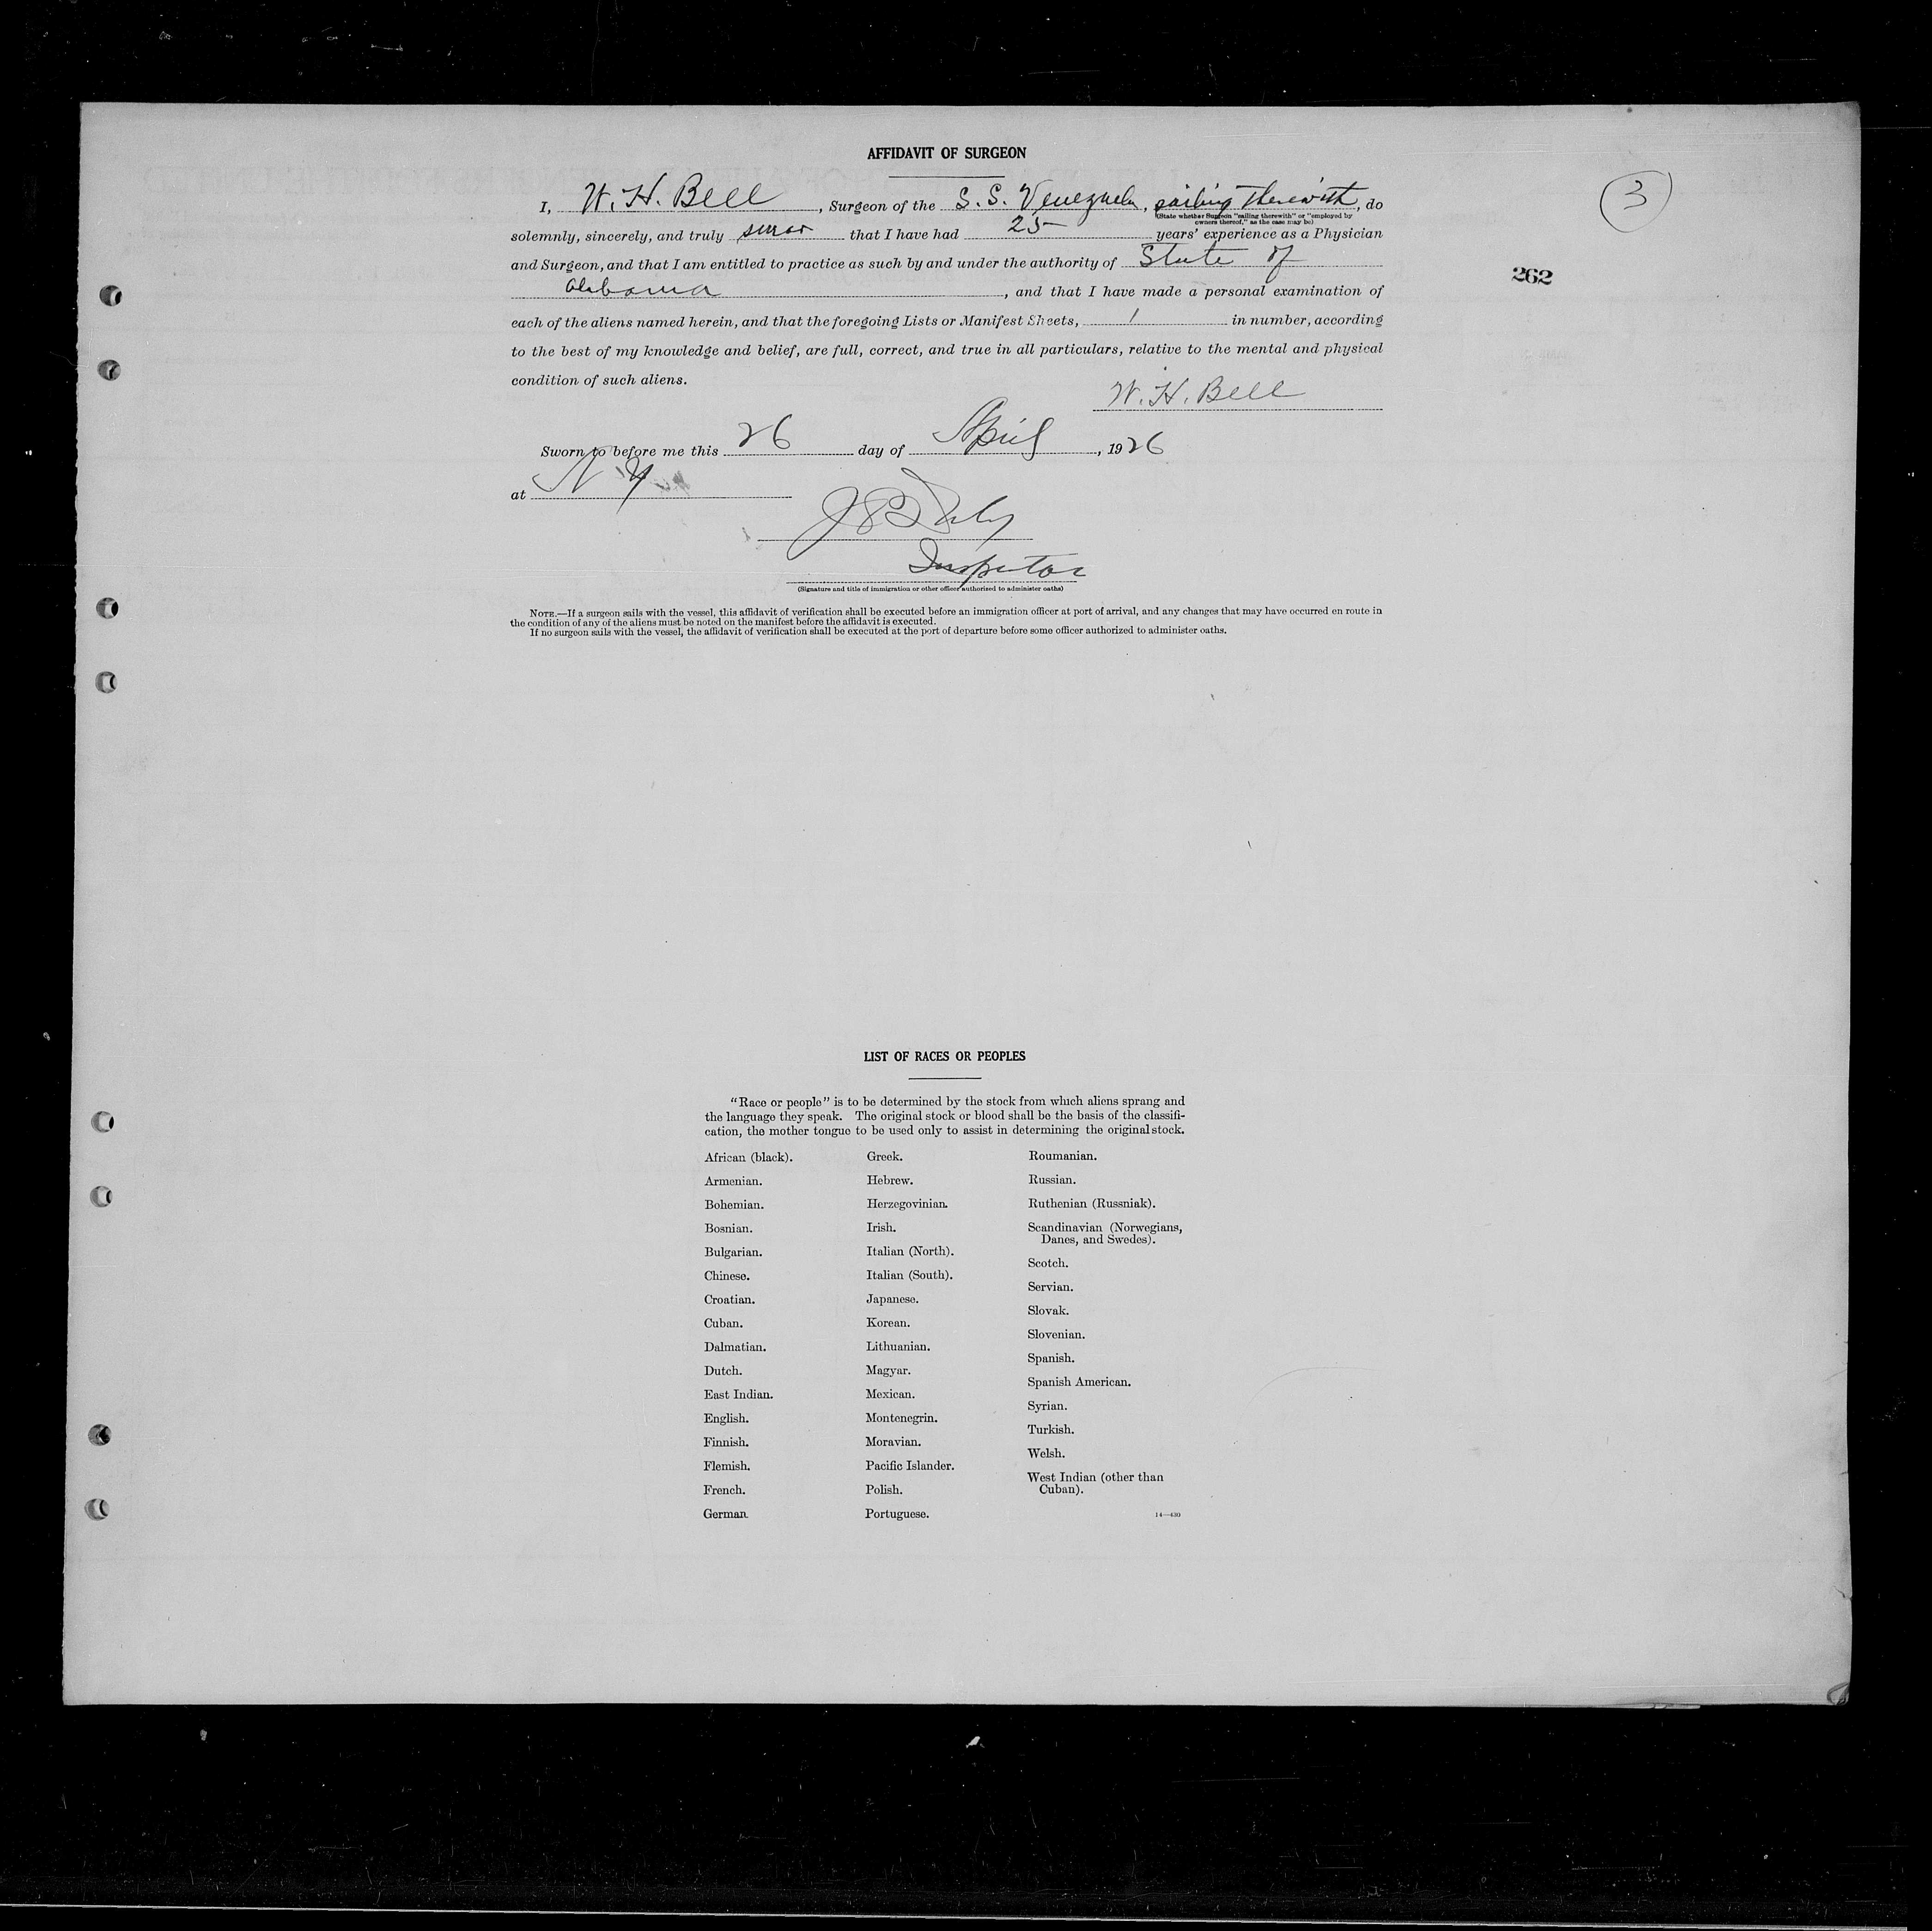 AFFIDAVIT OF SURGEON
3
I, W. H. Bell, Surgeon of the S. S. Venezuela, sailing therewith, do
(State whether Surgeon "sailing therewith" or "employed by
owners thereof," as the case may be)
solemnly, sincerely, and truly swear that I have had 25 years' experience as a Physician
and Surgeon, and that I am entitled to practice as such by and under the authority of State of
262
Alabama, and that I have made a personal examination of
each of the aliens named herein, and that the foregoing Lists or Manifest Sheets, 1 in number, according
to the best of my knowledge and belief, are full, correct, and true in all particulars, relative to the mental and physical
condition of such aliens.
W. H. Bell
Sworn to before me this 26 day of April, 1926
at N Y
Inspector
(Signature and title of immigration or other officer authorized to administer oaths)
NOTE.—If a surgeon sails with the vessel, this affidavit of verification shall be executed before an immigration officer at port of arrival, and any changes that may have occurred en route in
the condition of any of the aliens must be noted on the manifest before the affidavit is executed.
If no surgeon sails with the vessel, the affidavit of verification shall be executed at the port of departure before some officer authorized to administer oaths.
LIST OF RACES OR PEOPLES
"Race or people" is to be determined by the stock from which aliens sprang and
the language they speak. The original stock or blood shall be the basis of the classifi-
cation, the mother tongue to be used only to assist in determining the original stock.
African (black).
Armenian.
Bohemian.
Bosnian.
Bulgarian.
Chinese.
Croatian.
Cuban.
Dalmatian.
Dutch.
East Indian.
English.
Finnish.
Flemish.
French.
German
Greek.
Hebrew.
Herzegovinian.
Irish.
Italian (North).
Italian (South).
Japanese.
Korean.
Lithuanian.
Magyar.
Mexican.
Montenegrin.
Moravian.
Pacific Islander.
Polish.
Portuguese.
Roumanian.
Russian.
Ruthenian (Russniak).
Scandinavian (Norwegians,
Danes, and Swedes).
Scotch.
Servian.
Slovak.
Slovenian.
Spanish.
Spanish American.
Syrian.
Turkish.
Welsh.
West Indian (other than
Cuban).
14—430